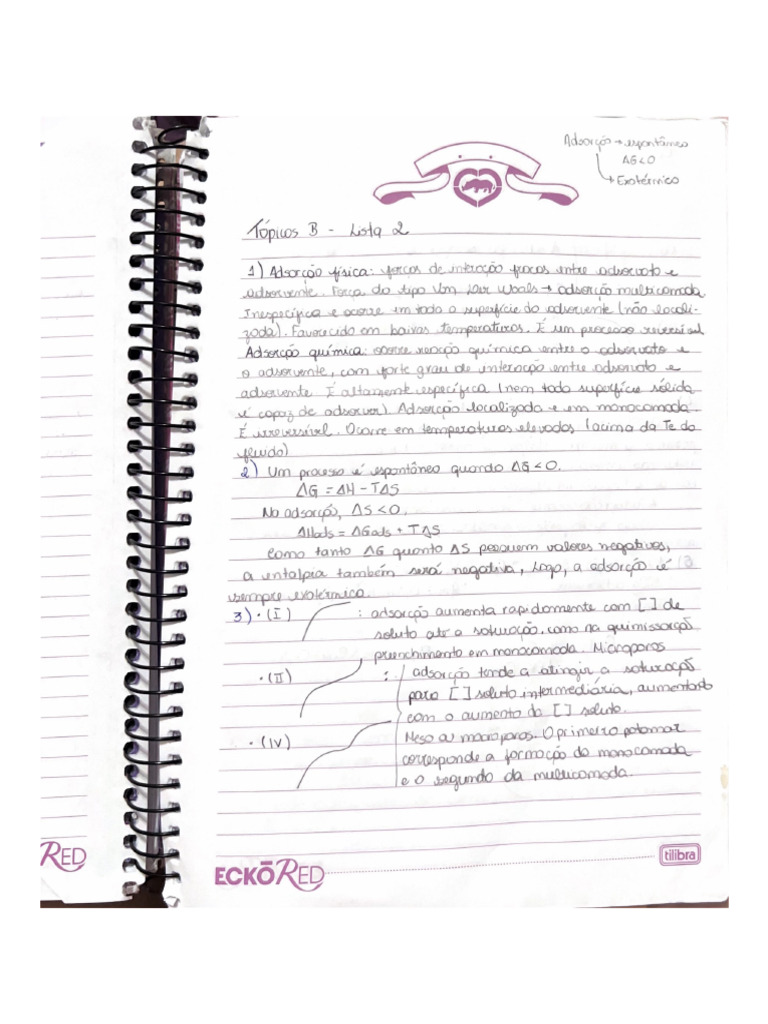 Adsorção → espontâneo
ΔG<0
→ Exotérmico
Tópicos B - Lista 2
1) Adsorção física: forças de interação fracas entre adsorvato e
adsorvente. Força do tipo Van der Waals → adsorção multicamada
Inespecífica e ocorre em toda a superfície do adsorvente (não locali-
zada). Favorecido em baixas temperaturas. É um processo reversível
Adsorção química: ocorre reação química entre o adsorvato e
o adsorvente, com forte grau de interação entre adsorvato e
adsorvente. É altamente específica (nem toda superfície sólida
é capaz de adsorver) Adsorção localizada e em monocamada.
É irreversível. Ocorre em temperaturas elevadas (acima da Te do
fluido)
2) Um processo é espontâneo quando ΔG<0.
ΔG = ΔH - TΔS
Na adsorção, ΔS<0.
ΔHads = ΔGads + TΔS
Como tanto ΔG quanto ΔS possuem valores negativos,
a entalpia também será negativa, logo, a adsorção é
sempre exotérmica.
3) • (I) : adsorção aumenta rapidamente com [ ] de
soluto até a saturação, como na quimissorção
preenchimento em monocamada. Microporos
• (II) : adsorção tende a atingir a saturação
para [ ] soluto intermediária, aumentando
com o aumento da [ ] soluto.
• (IV) Meso ou macroporos. O primeiro patamar
corresponde a formação da monocamada
e o segundo da multicamada.
RED
ECKŌ RED
tilibra